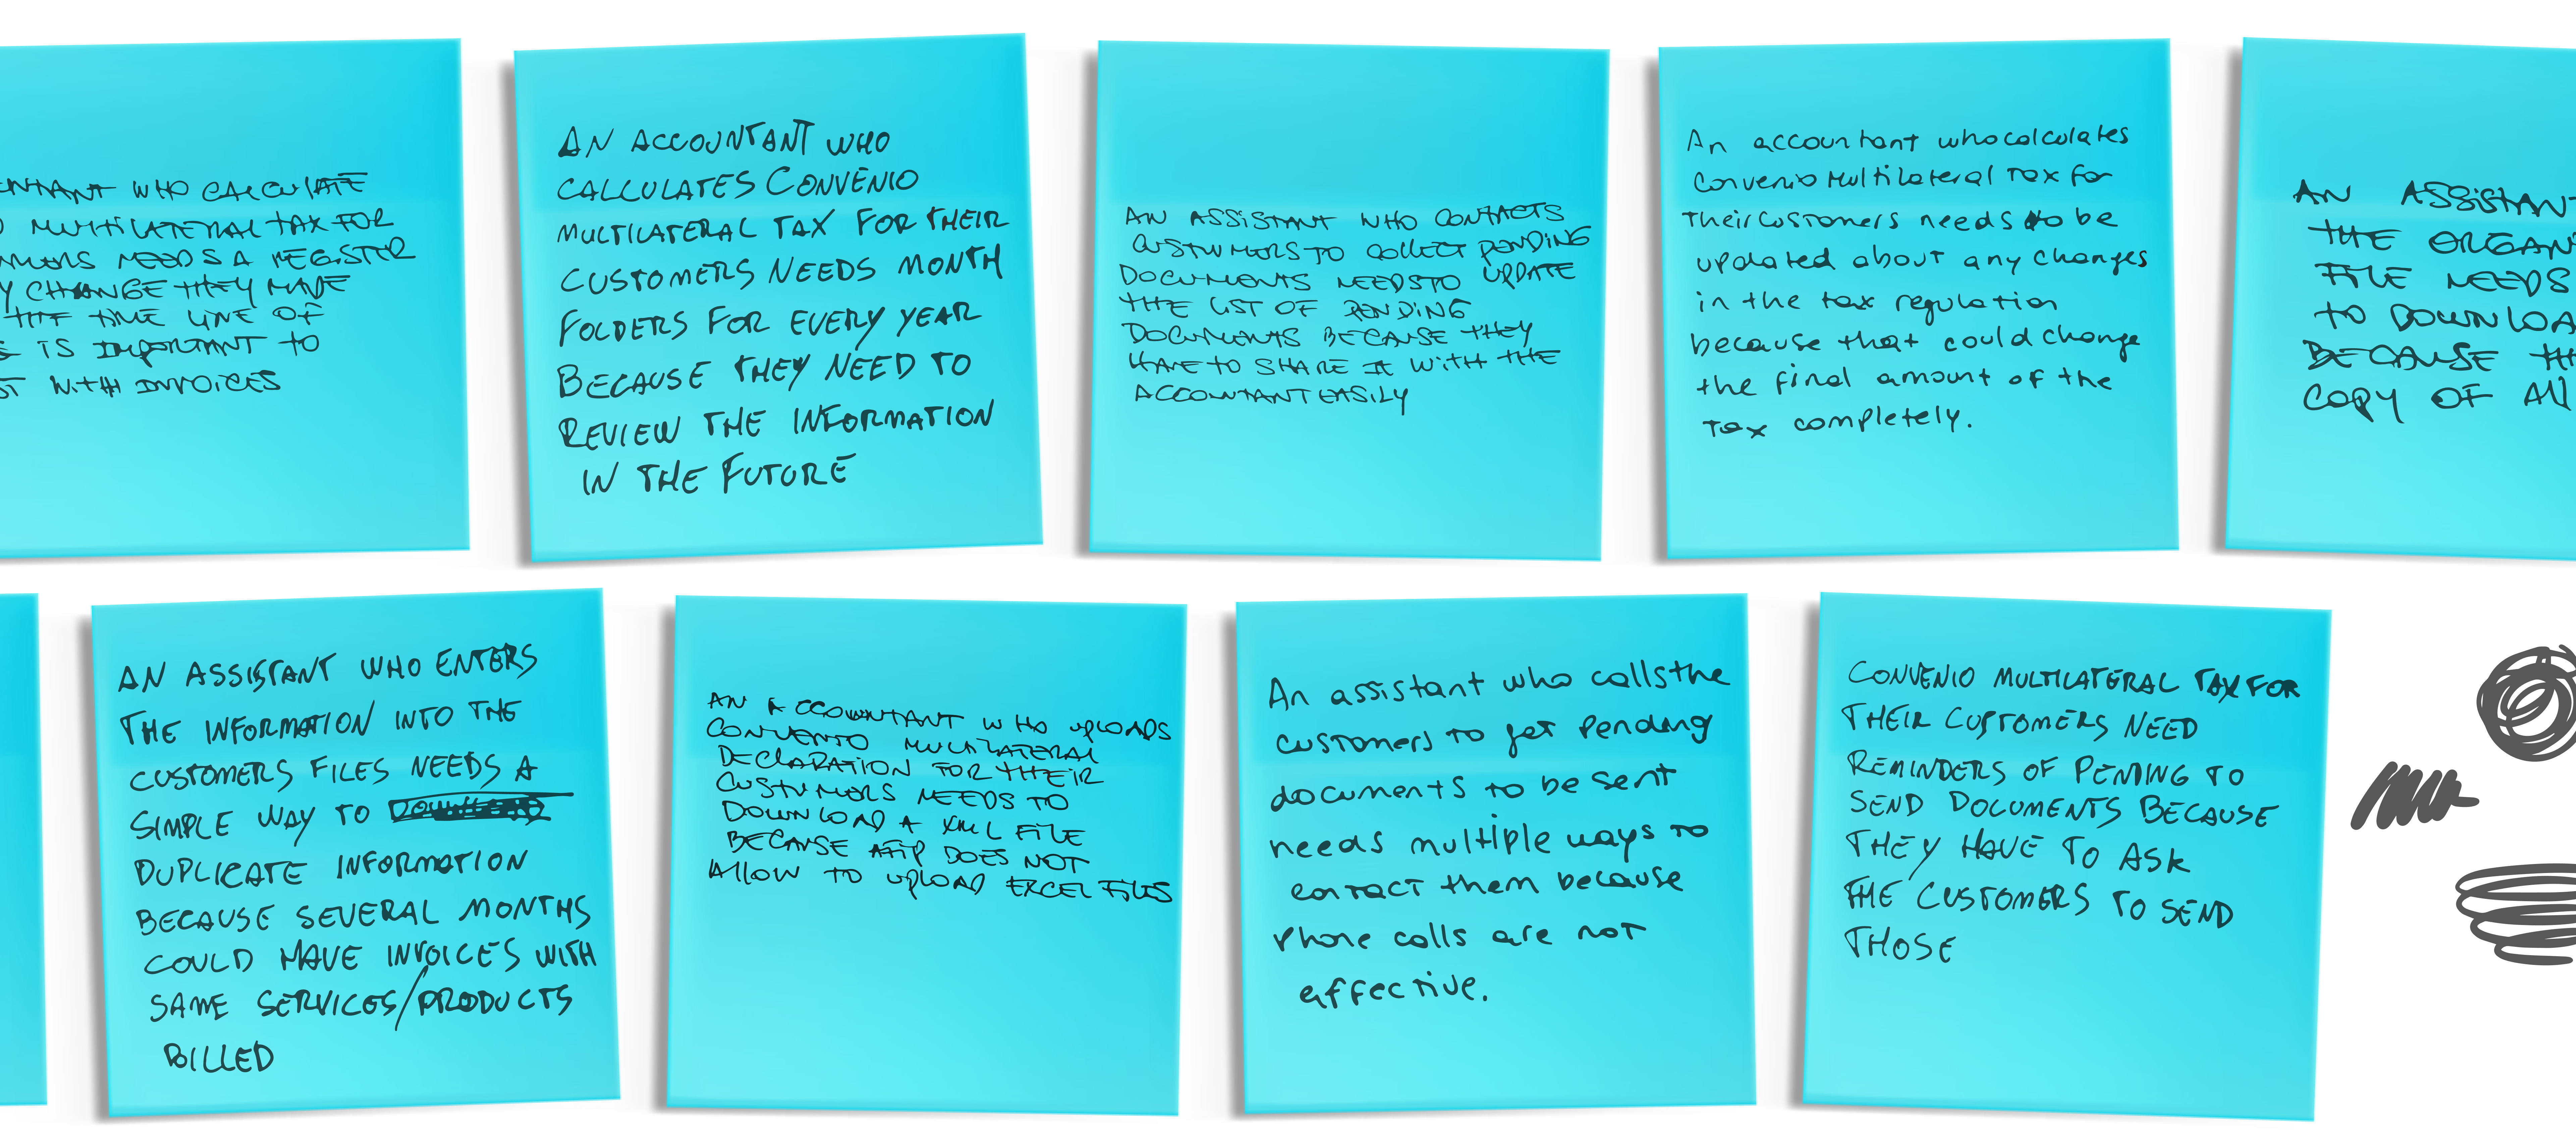 NTANT WHO CALCULATE
O MULTILATERAL TAX FOR
OMERS NEEDS A REGISTER
Y CHANGE THEY MADE
THE TIME LINE OF
IS IMPORTANT TO
ST WITH INVOICES
AN ACCOUNTANT WHO
CALCULATES CONVENIO
MULTILATERAL TAX FOR THEIR
CUSTOMERS NEEDS MONTH
FOLDERS FOR EVERY YEAR
BECAUSE THEY NEED TO
REVIEW THE INFORMATION
IN THE FUTURE
AN ASSISTANT WHO CONTACTS
CUSTUMERS TO COLLECT PENDING
DOCUMENTS NEEDS TO UPDATE
THE LIST OF PENDING
DOCUMENTS BECAUSE THEY
HAVE TO SHARE IT WITH THE
ACCOUNTANT EASILY
An accountant who calculates
Convenio Multilateral Tax for
their customers needs to be
updated about any changes
in the tax regulation
because that could change
the final amount of the
tax completely.
AN ASSISTANT
THE ORGAN
FILE NEEDS
TO DOWNLOA
BECAUSE TH
COPY OF All
AN ASSISTANT WHO ENTERS
THE INFORMATION INTO THE
CUSTOMERS FILES NEEDS A
SIMPLE WAY TO
DUPLICATE INFORMATION
BECAUSE SEVERAL MONTHS
COULD HAVE INVOICES WITH
SAME SERVICES/PRODUCTS
BILLED
AN ACCOUNTANT WHO UPLOADS
CONVENIO MULTILATERAL
DECLARATION FOR THEIR
CUSTUMERS NEEDS TO
DOWNLOAD A XML FILE
BECAUSE AFIP DOES NOT
ALLOW TO UPLOAD EXCEL FILES
An assistant who calls the
customers to get pending
documents to be sent
needs multiple ways to
contact them because
phone calls are not
effective.
CONVENIO MULTILATERAL TAX FOR
THEIR CUSTOMERS NEED
REMINDERS OF PENDING TO
SEND DOCUMENTS BECAUSE
THEY HAVE TO ASK
THE CUSTOMERS TO SEND
THOSE